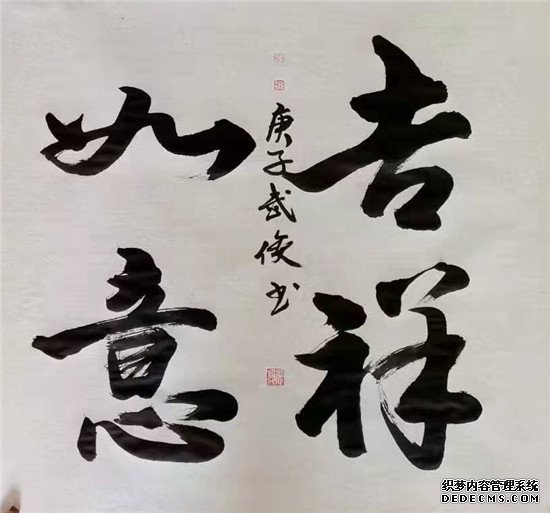 吉祥
如意
庚子武俊书
织梦内容管理系统
DEDECMS.COM